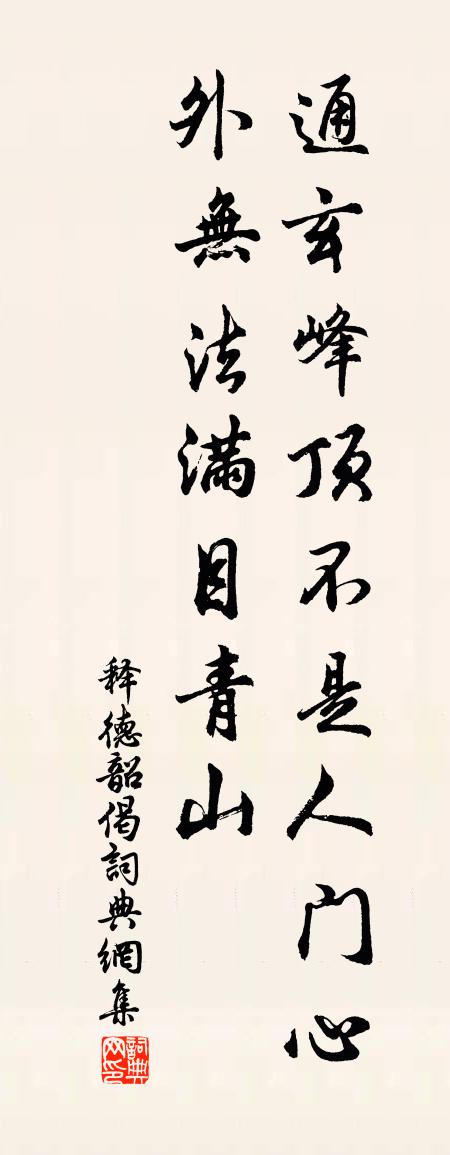 通玄峰顶不是人门心
外無法满目青山
释德韶偈詞典網集
詞典网印